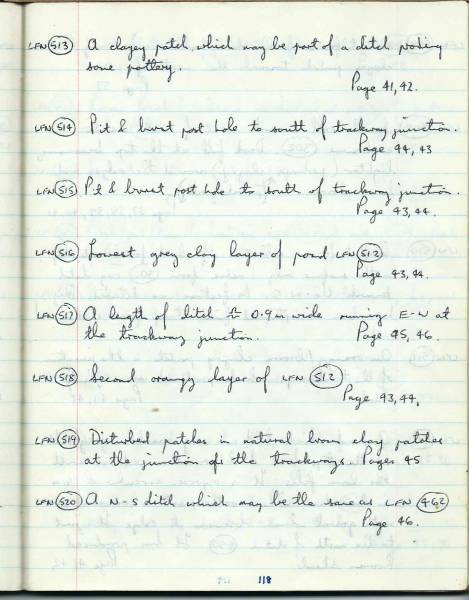 LFN 513 A clayey patch, which may be part of a ditch
some pottery.
Page 41, 42.
LFN 514 Pit & burnt post hole to south of trackway junction.
Page 44, 43
LFN 515 Pit & burnt post hole to south of trackway junction.
Page 43, 44.
LFN 516 Lowest grey clay layer of pond LFN 512
Page 43, 44.
LFN 517 A length of ditch 0.9m wide running E-W at
the trackway junction. Page 45, 46.
LFN 518 Second orangy layer of LFN 512
Page 43, 44.
LFN 519 Disturbed patches in natural brown clay patches
at the junction of the trackways. Pages 45
LFN 520 A N-S ditch which may be the same as LFN 462
Page 46.
118